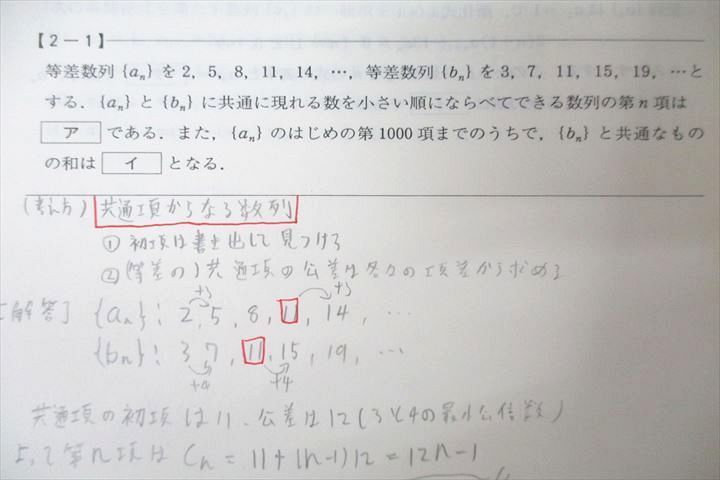 【2－1】
等差数列 {aₙ} を 2，5，8，11，14，…，等差数列 {bₙ} を 3，7，11，15，19，…と
する．{aₙ} と {bₙ} に共通に現れる数を小さい順にならべてできる数列の第 n 項は
ア である．また，{aₙ} のはじめの第 1000 項までのうちで，{bₙ} と共通なもの
の和は イ となる．
(考え方) 共通項からなる数列
① 初項は書き出して見つける
② (等差の) 共通項の公差は各々の項差から求める
+3 +3
[解答] {aₙ}: 2, 5, 8, 11, 14, …
{bₙ}: 3, 7, 11, 15, 19, …
+4 +4
共通項の初項は11、公差は12(3と4の最小公倍数)
よって第n項は Cₙ = 11+(n-1)12 = 12n-1